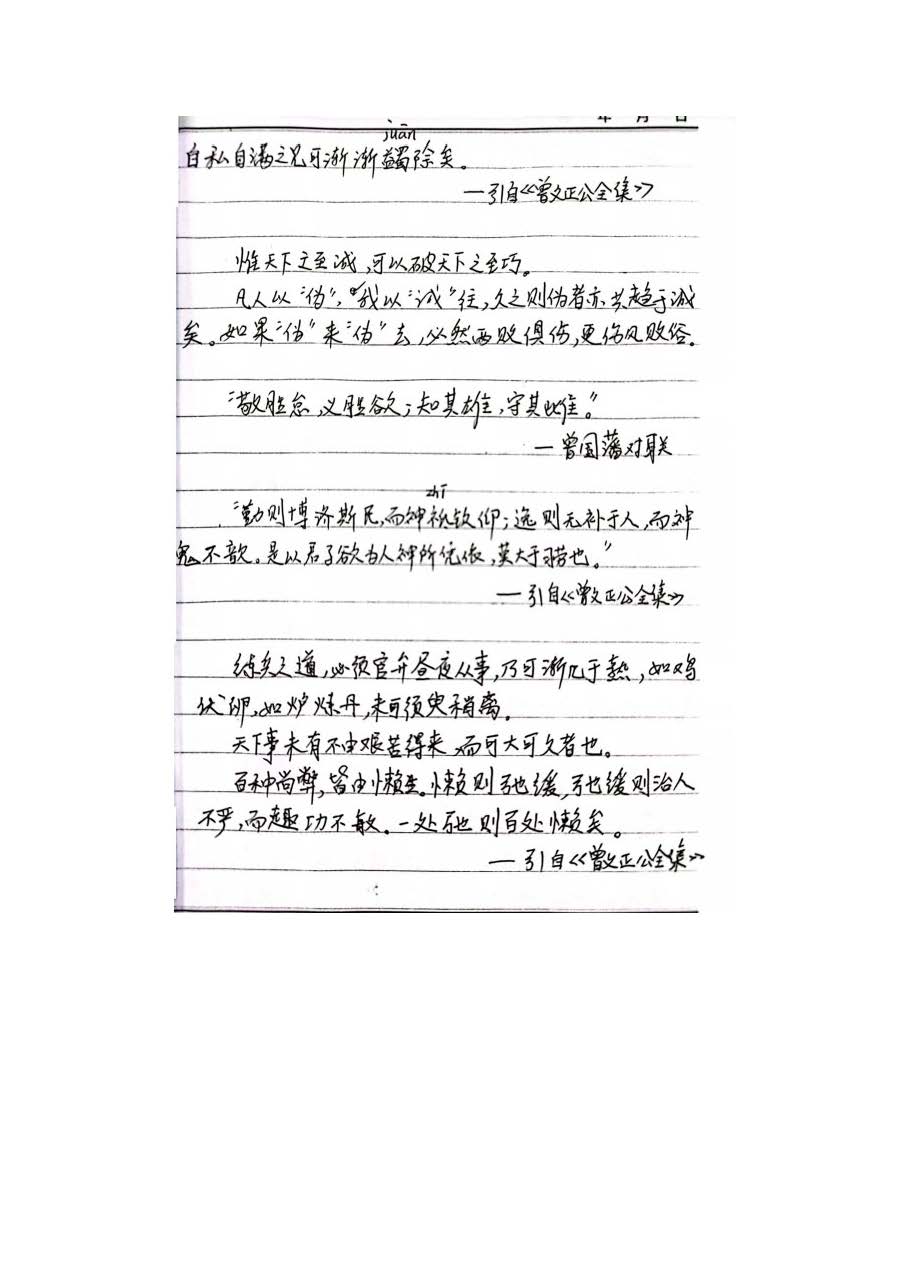 年 月 日
juān
自私自满之见可渐渐蠲除矣。
—引自《曾文正公全集》
惟天下之至诚,可以破天下之至巧。
凡人以“伪”,我以“诚”往,久之则伪者亦共趋于诚
矣。如果“伪”来“伪”去,必然两败俱伤,更伤风败俗。
“敬胜怠,义胜欲;知其雄,守其雌。”
—曾国藩对联
zhī
“勤则博济斯民,而神祇钦仰;逸则无补于人,而神
鬼不歆。是以君子欲为人神所凭依,莫大于劳也。”
—引自《曾文正公全集》
练兵之道,必须官弁昼夜从事,乃可渐几于熟,如鸡
伏卵,如炉炼丹,未可须臾稍离。
天下事未有不由艰苦得来,而可大可久者也。
百种尚弊,皆由懒生。懒则弛缓,弛缓则治人
不严,而趣功不敏。一处弛则百处懒矣。
—引自《曾文正公全集》